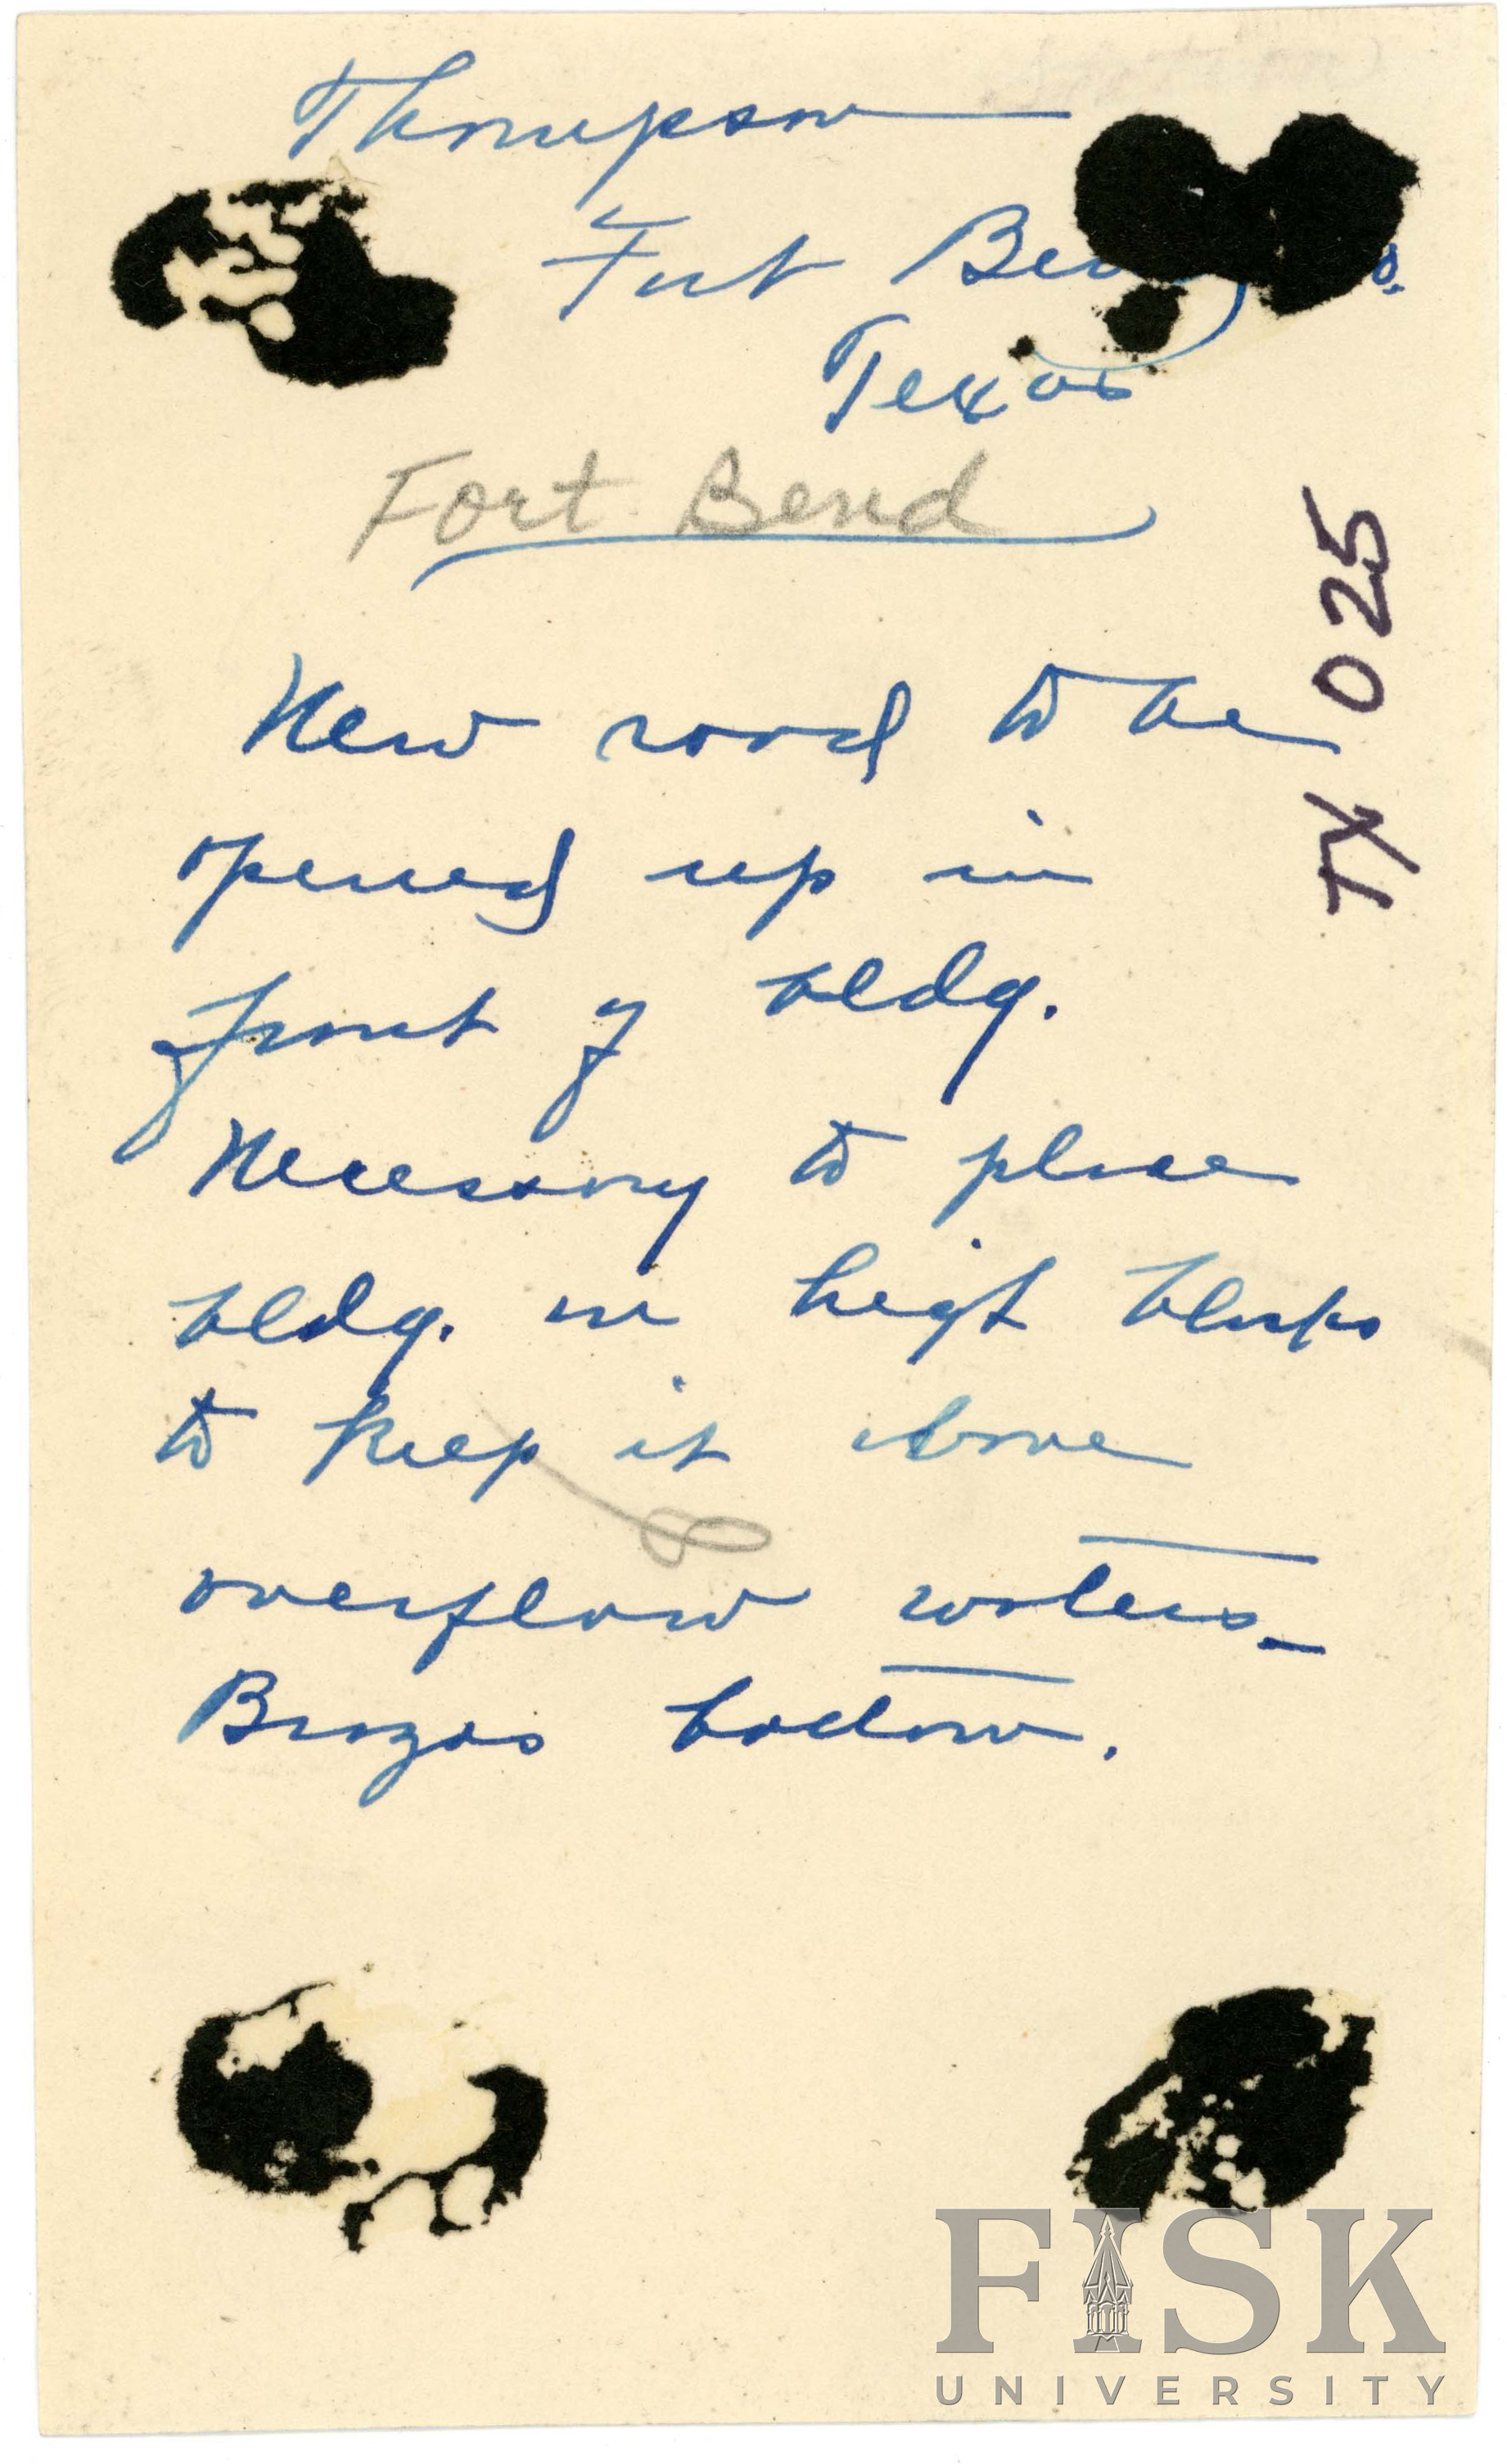 Thompson
Fort Be
Texas
Fort Bend
TX 025
New road to be
opened up in
front of bldg.
Necessary to place
bldg. on high blocks
to keep it above
overflow waters_
Brazos bottom.
FISK
UNIVERSITY